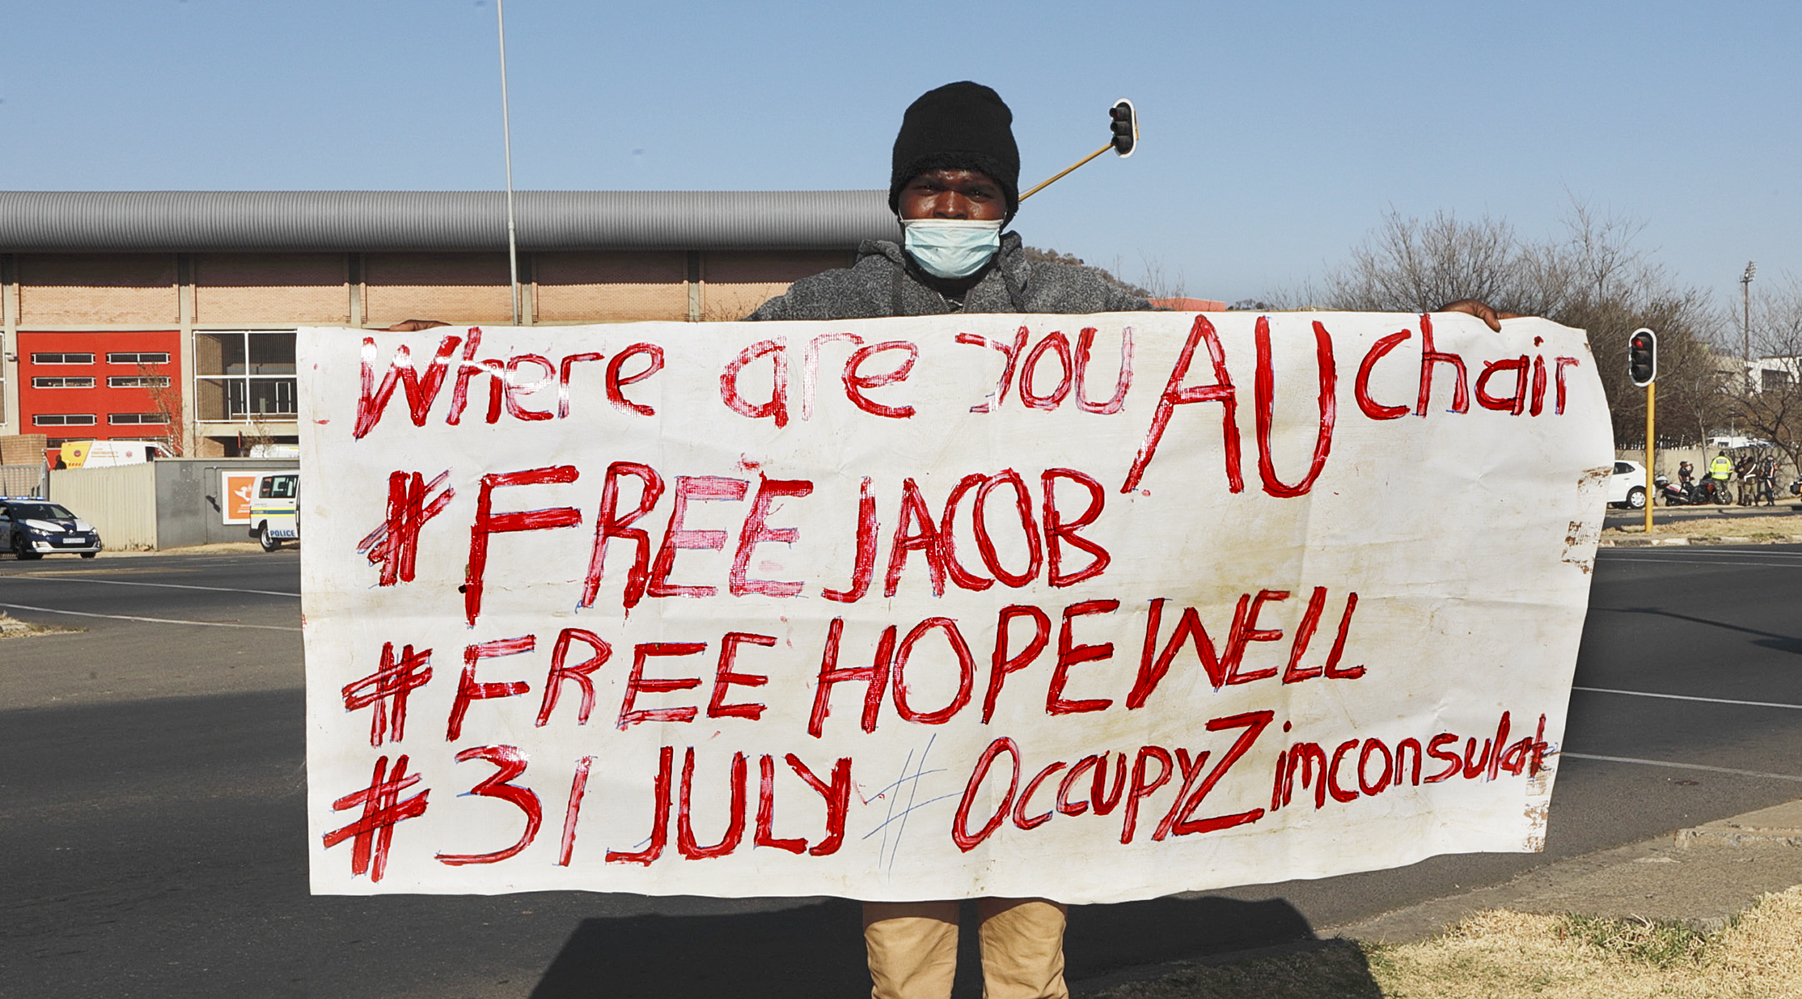 Where are you AU chair
#FREE JACOB
#FREE HOPEWELL
#31 JULY #OccupyZimconsulate
POLICE